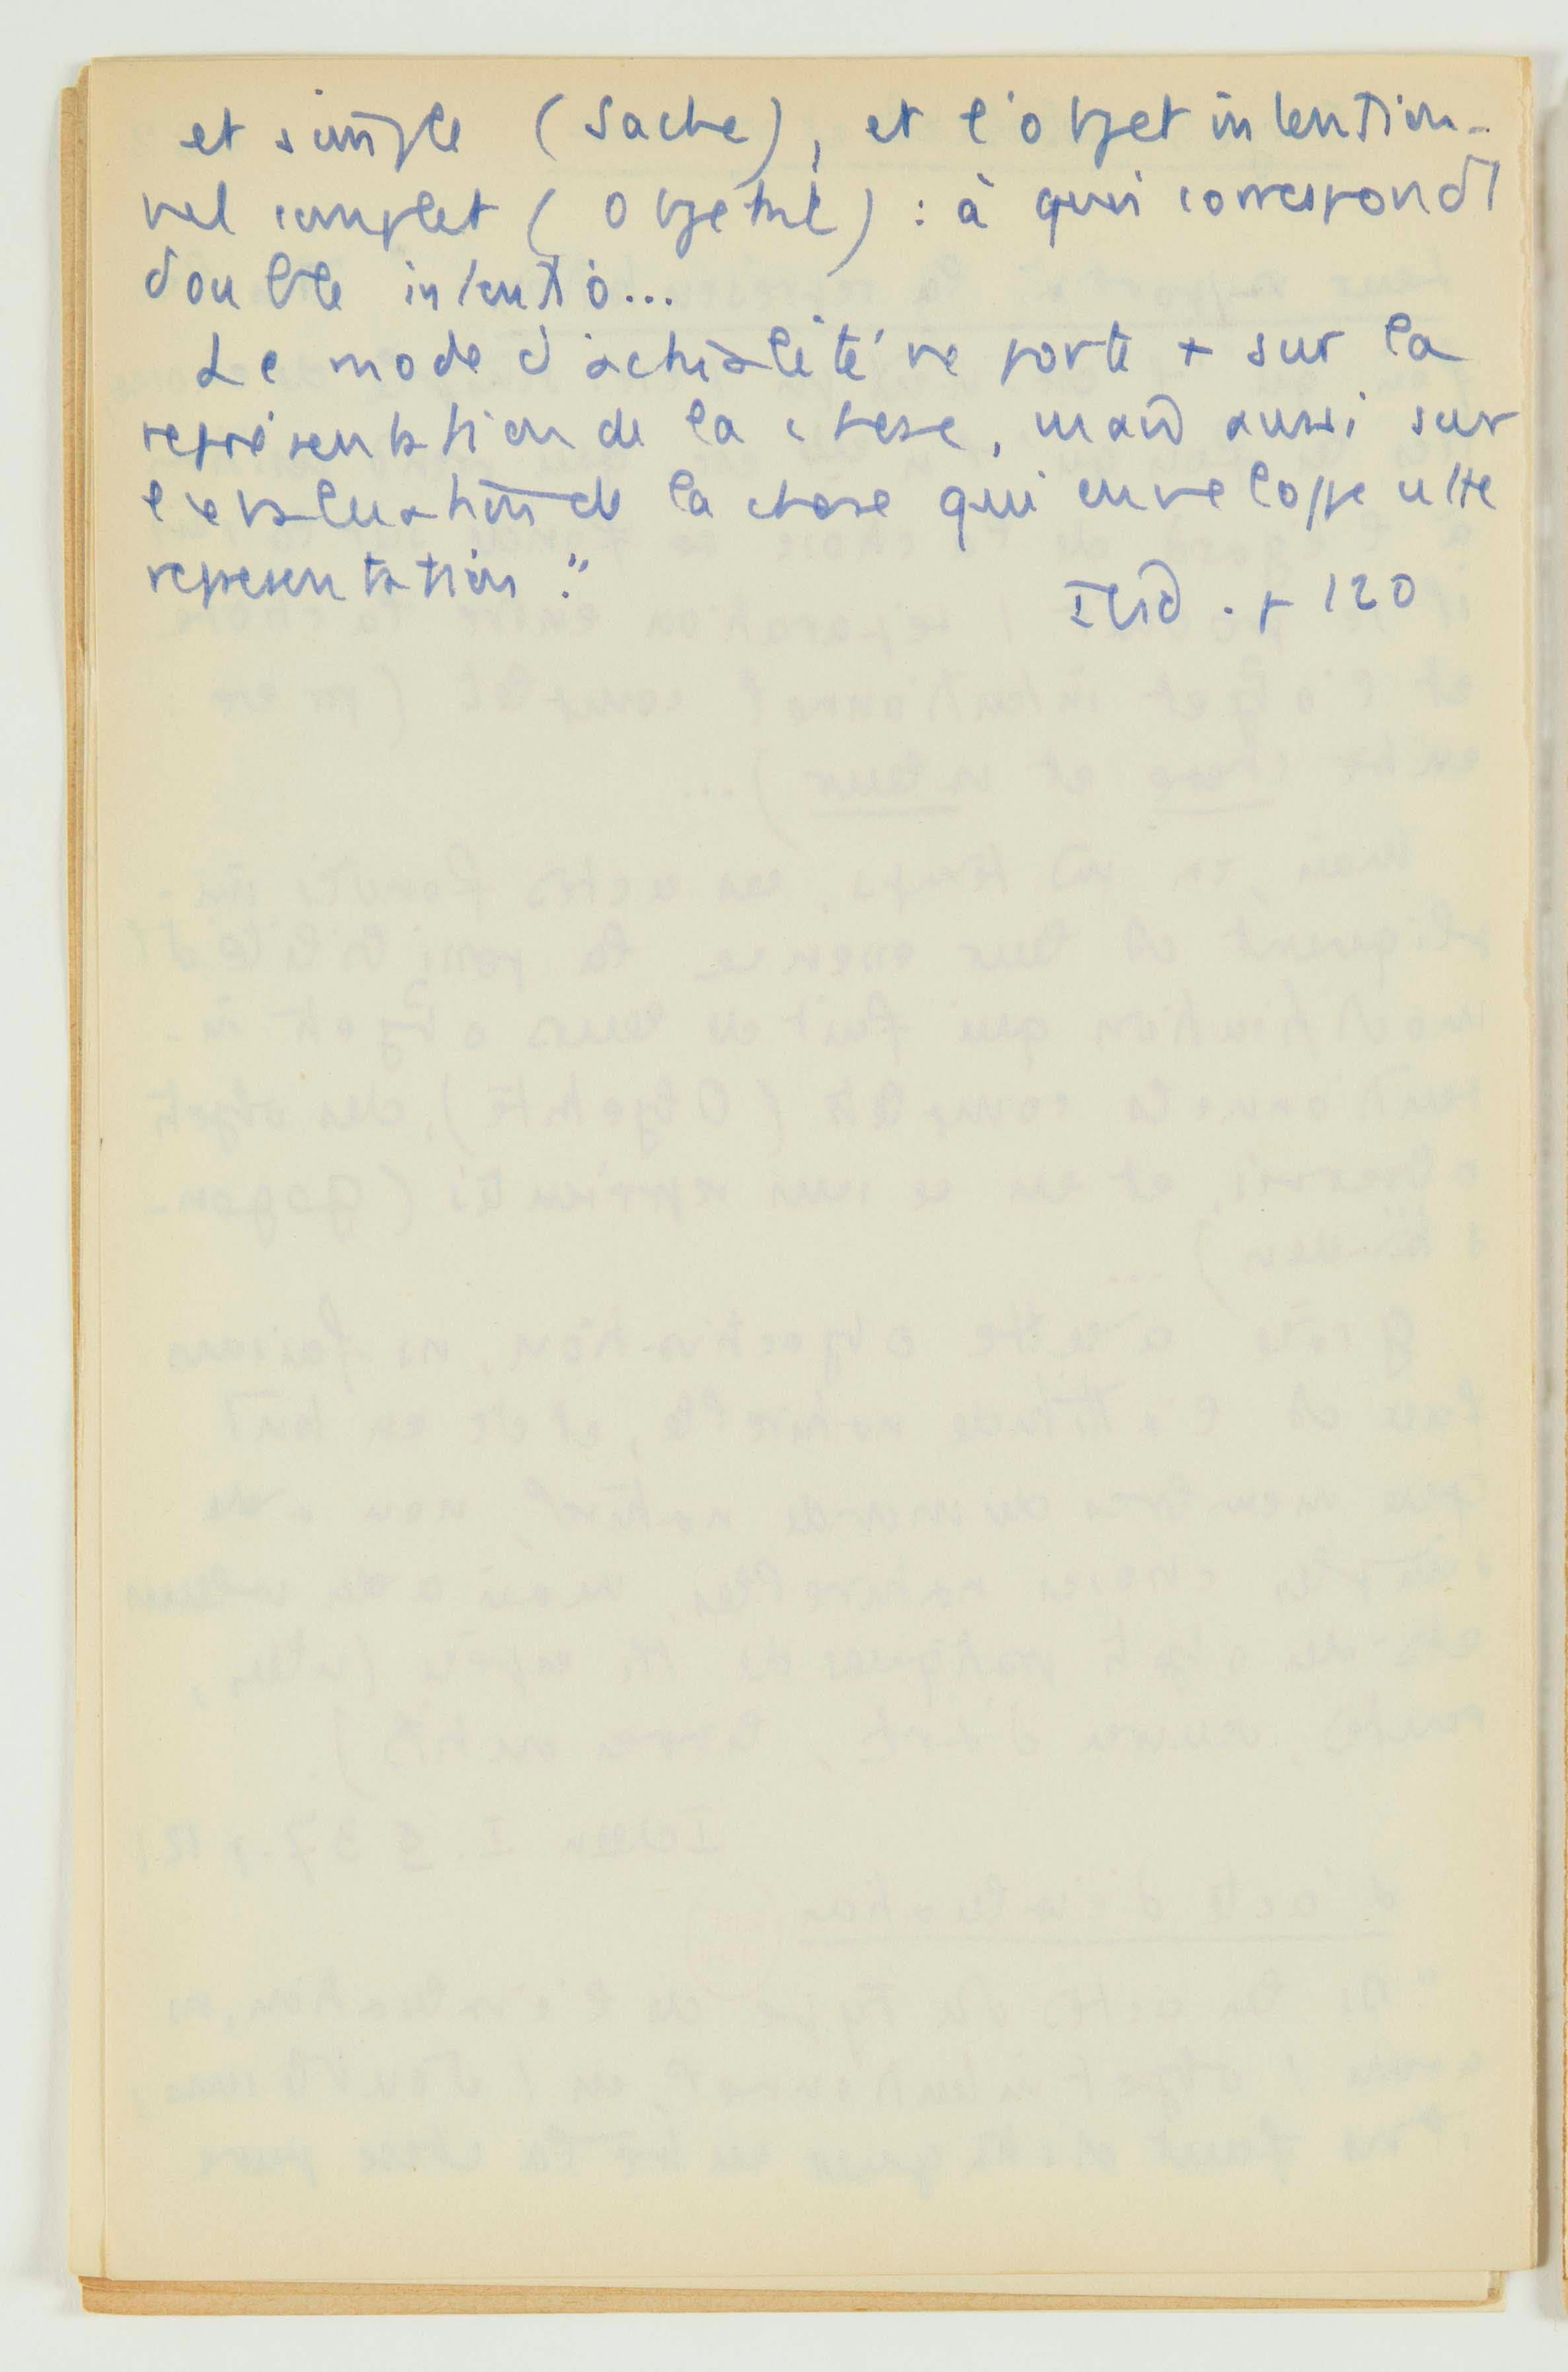 et simple (Sache), et l'objet intention-
nel complet (Objekt) : à quoi correspond 1
double intentio...
Le mode d'actualité ne porte + sur la
représentation de la chose, mais aussi sur
l'évaluation de la chose qui enveloppe cette
representation."
Ibid. p 120